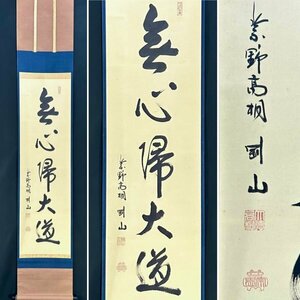 無心帰大道
紫野高桐剛山
無心帰大道
紫野高桐剛山
紫野高桐剛山